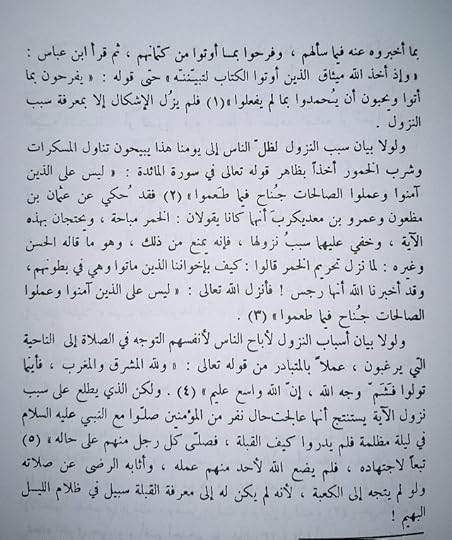 بما أخبروه عنه فيما سألهم ، وفرحوا بمـا أوتوا من كتمانهم ، ثم قرأ ابن عباس :
« وإذ أخذ الله ميثاق الذين أوتوا الكتاب لتبيّننـّه » حتى قوله : « يفرحون بما
أتوا ويحبون أن يُحمدوا بما لم يفعلوا » (١) فلم يزُل الإشكال إلا بمعرفة سبب
النزول .
ولولا بيان سبب النزول لظلّ الناس إلى يومنا هذا يبيحون تناول المسكرات
وشرب الخمور أخذاً بظاهر قوله تعالى في سورة المائدة : « ليس على الذين
آمنوا وعملوا الصالحات جُناح فيما طَعموا » (٢) فقد حُكي عن عثمان بن
مظعون وعمرو بن معديكرب أنهما كانا يقولان : الخمر مباحة ، ويحتجان بهذه
الآية ، وخفي عليهما سببُ نزولها ، فإنه يمنع من ذلك ، وهو ما قاله الحسن
وغيره : لما نزل تحريم الخمر قالوا : كيف بإخواننا الذين ماتوا وهي في بطونهم،
وقد أخبرنا الله أنها رجس ! فأنزل الله تعالى : « ليس على الذين آمنوا وعملوا
الصالحات جُناح فيما طعموا » (٣) .
ولولا بيان أسباب النزول لأباح الناس لأنفسهم التوجه في الصلاة إلى الناحية
التي يرغبون ، عملاً بالمتبادر من قوله تعالى : « ولله المشرق والمغرب ، فأينما
تولوا فَثَمّ وجه الله ، إنّ الله واسع عليم » (٤) . ولكن الذي يطلع على سبب
نزول الآية يستنتج أنها عالجت حال نفر من المؤمنين صلّوا مع النبي عليه السلام
في ليلة مظلمة فلم يدروا كيف القبلة ، فصلّى كلّ رجل منهم على حاله » (٥)
تبعاً لاجتهاده ، فلم يضع الله لأحد منهم عمله ، وأثابه الرضى عن صلاته
ولو لم يتجه إلى الكعبة ، لأنه لم يكن له إلى معرفة القبلة سبيل في ظلام الليـل
البهيم !